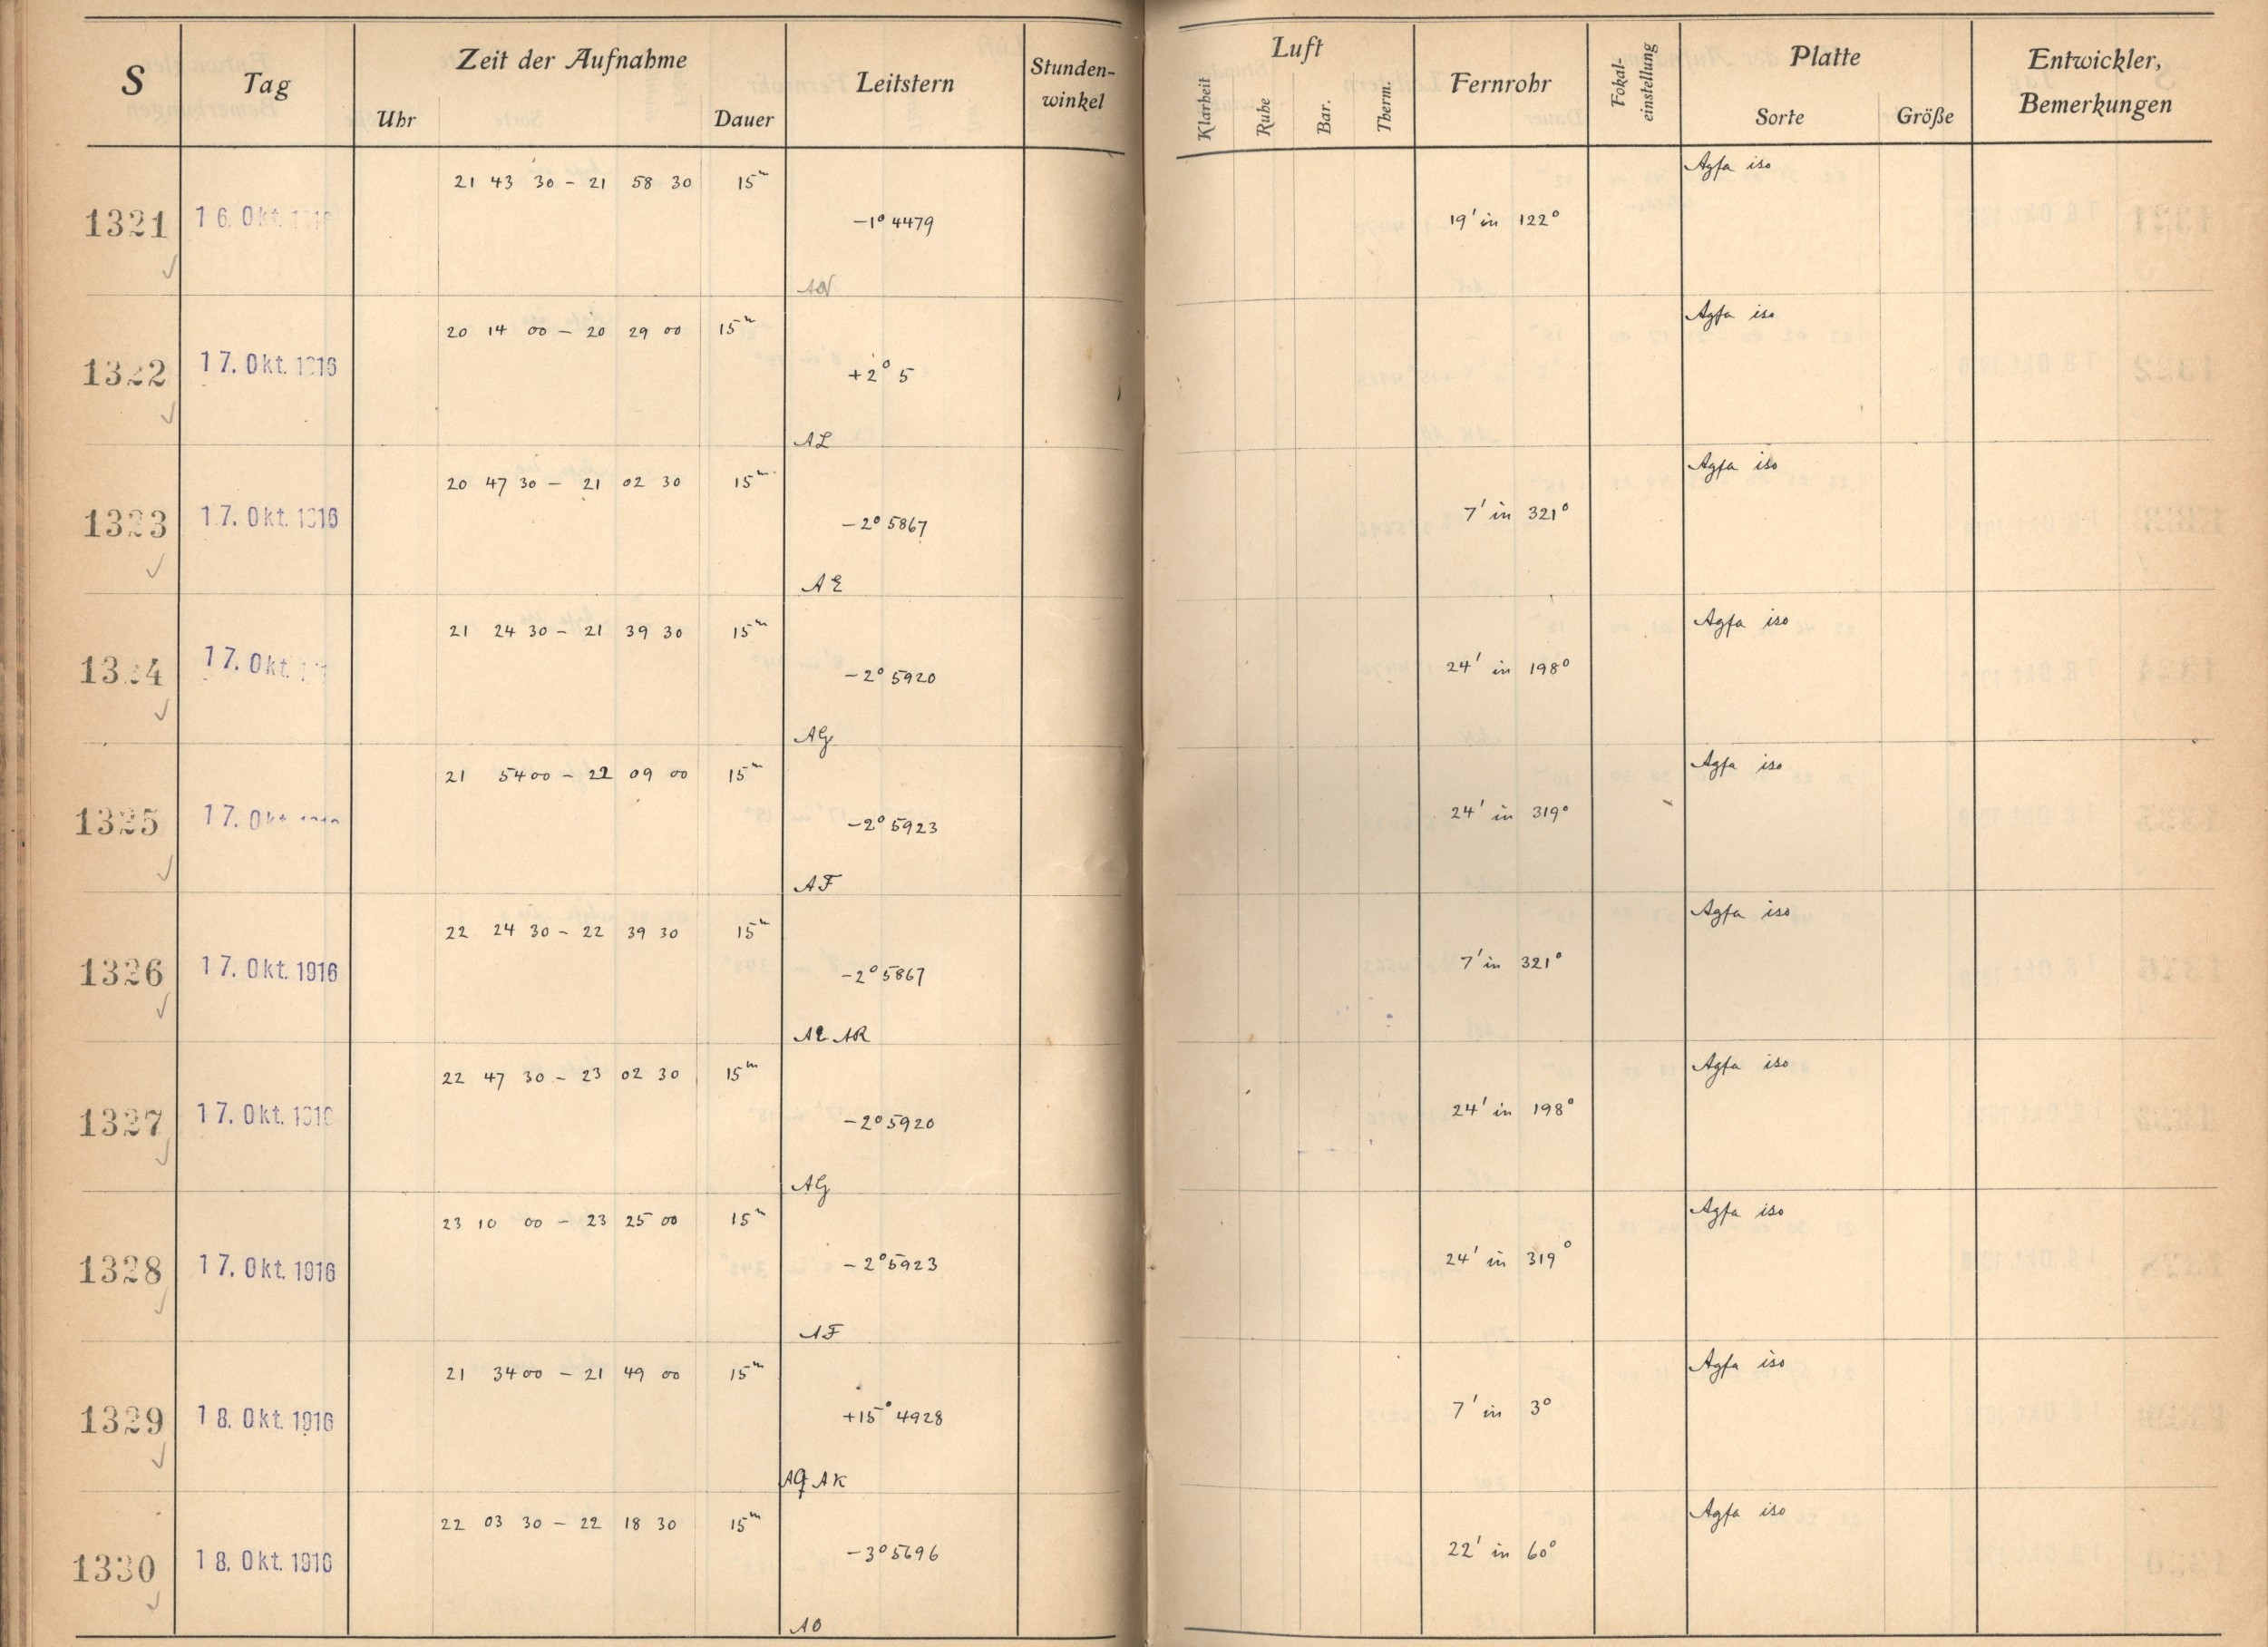 S Tag Zeit der Aufnahme Uhr Dauer Leitstern Stunden-winkel Luft Klarheit Ruhe Bar. Therm. Fernrohr Fokal-einstellung Platte Sorte Größe Entwickler, Bemerkungen
21 43 30 – 21 58 30 15m Agfa iso
1321 16. Okt. –1° 4479 19' in 122°
20 14 00 – 20 29 00 15m Agfa iso
1322 17. Okt. 1916 +2° 5
AL
20 47 30 – 21 02 30 15m Agfa iso
1323 17. Okt. 1916 –2° 5867 7' in 321°
AE
21 24 30 – 21 39 30 15m Agfa iso
1324 17. Okt. –2° 5920 24' in 198°
AG
21 54 00 – 22 09 00 15m Agfa iso
1325 17. Okt. –2° 5923 24' in 319°
AF
22 24 30 – 22 39 30 15m Agfa iso
1326 17. Okt. 1916 –2° 5867 7' in 321°
AR
22 47 30 – 23 02 30 15m Agfa iso
1327 17. Okt. 1916 –2° 5920 24' in 198°
AG
23 10 00 – 23 25 00 15m Agfa iso
1328 17. Okt. 1916 –2° 5923 24' in 319°
AF
21 34 00 – 21 49 00 15m Agfa iso
1329 18. Okt. 1916 +15° 4928 7' in 3°
AQ AK
22 03 30 – 22 18 30 15m Agfa iso
1330 18. Okt. 1916 –3° 5696 22' in 60°
AO